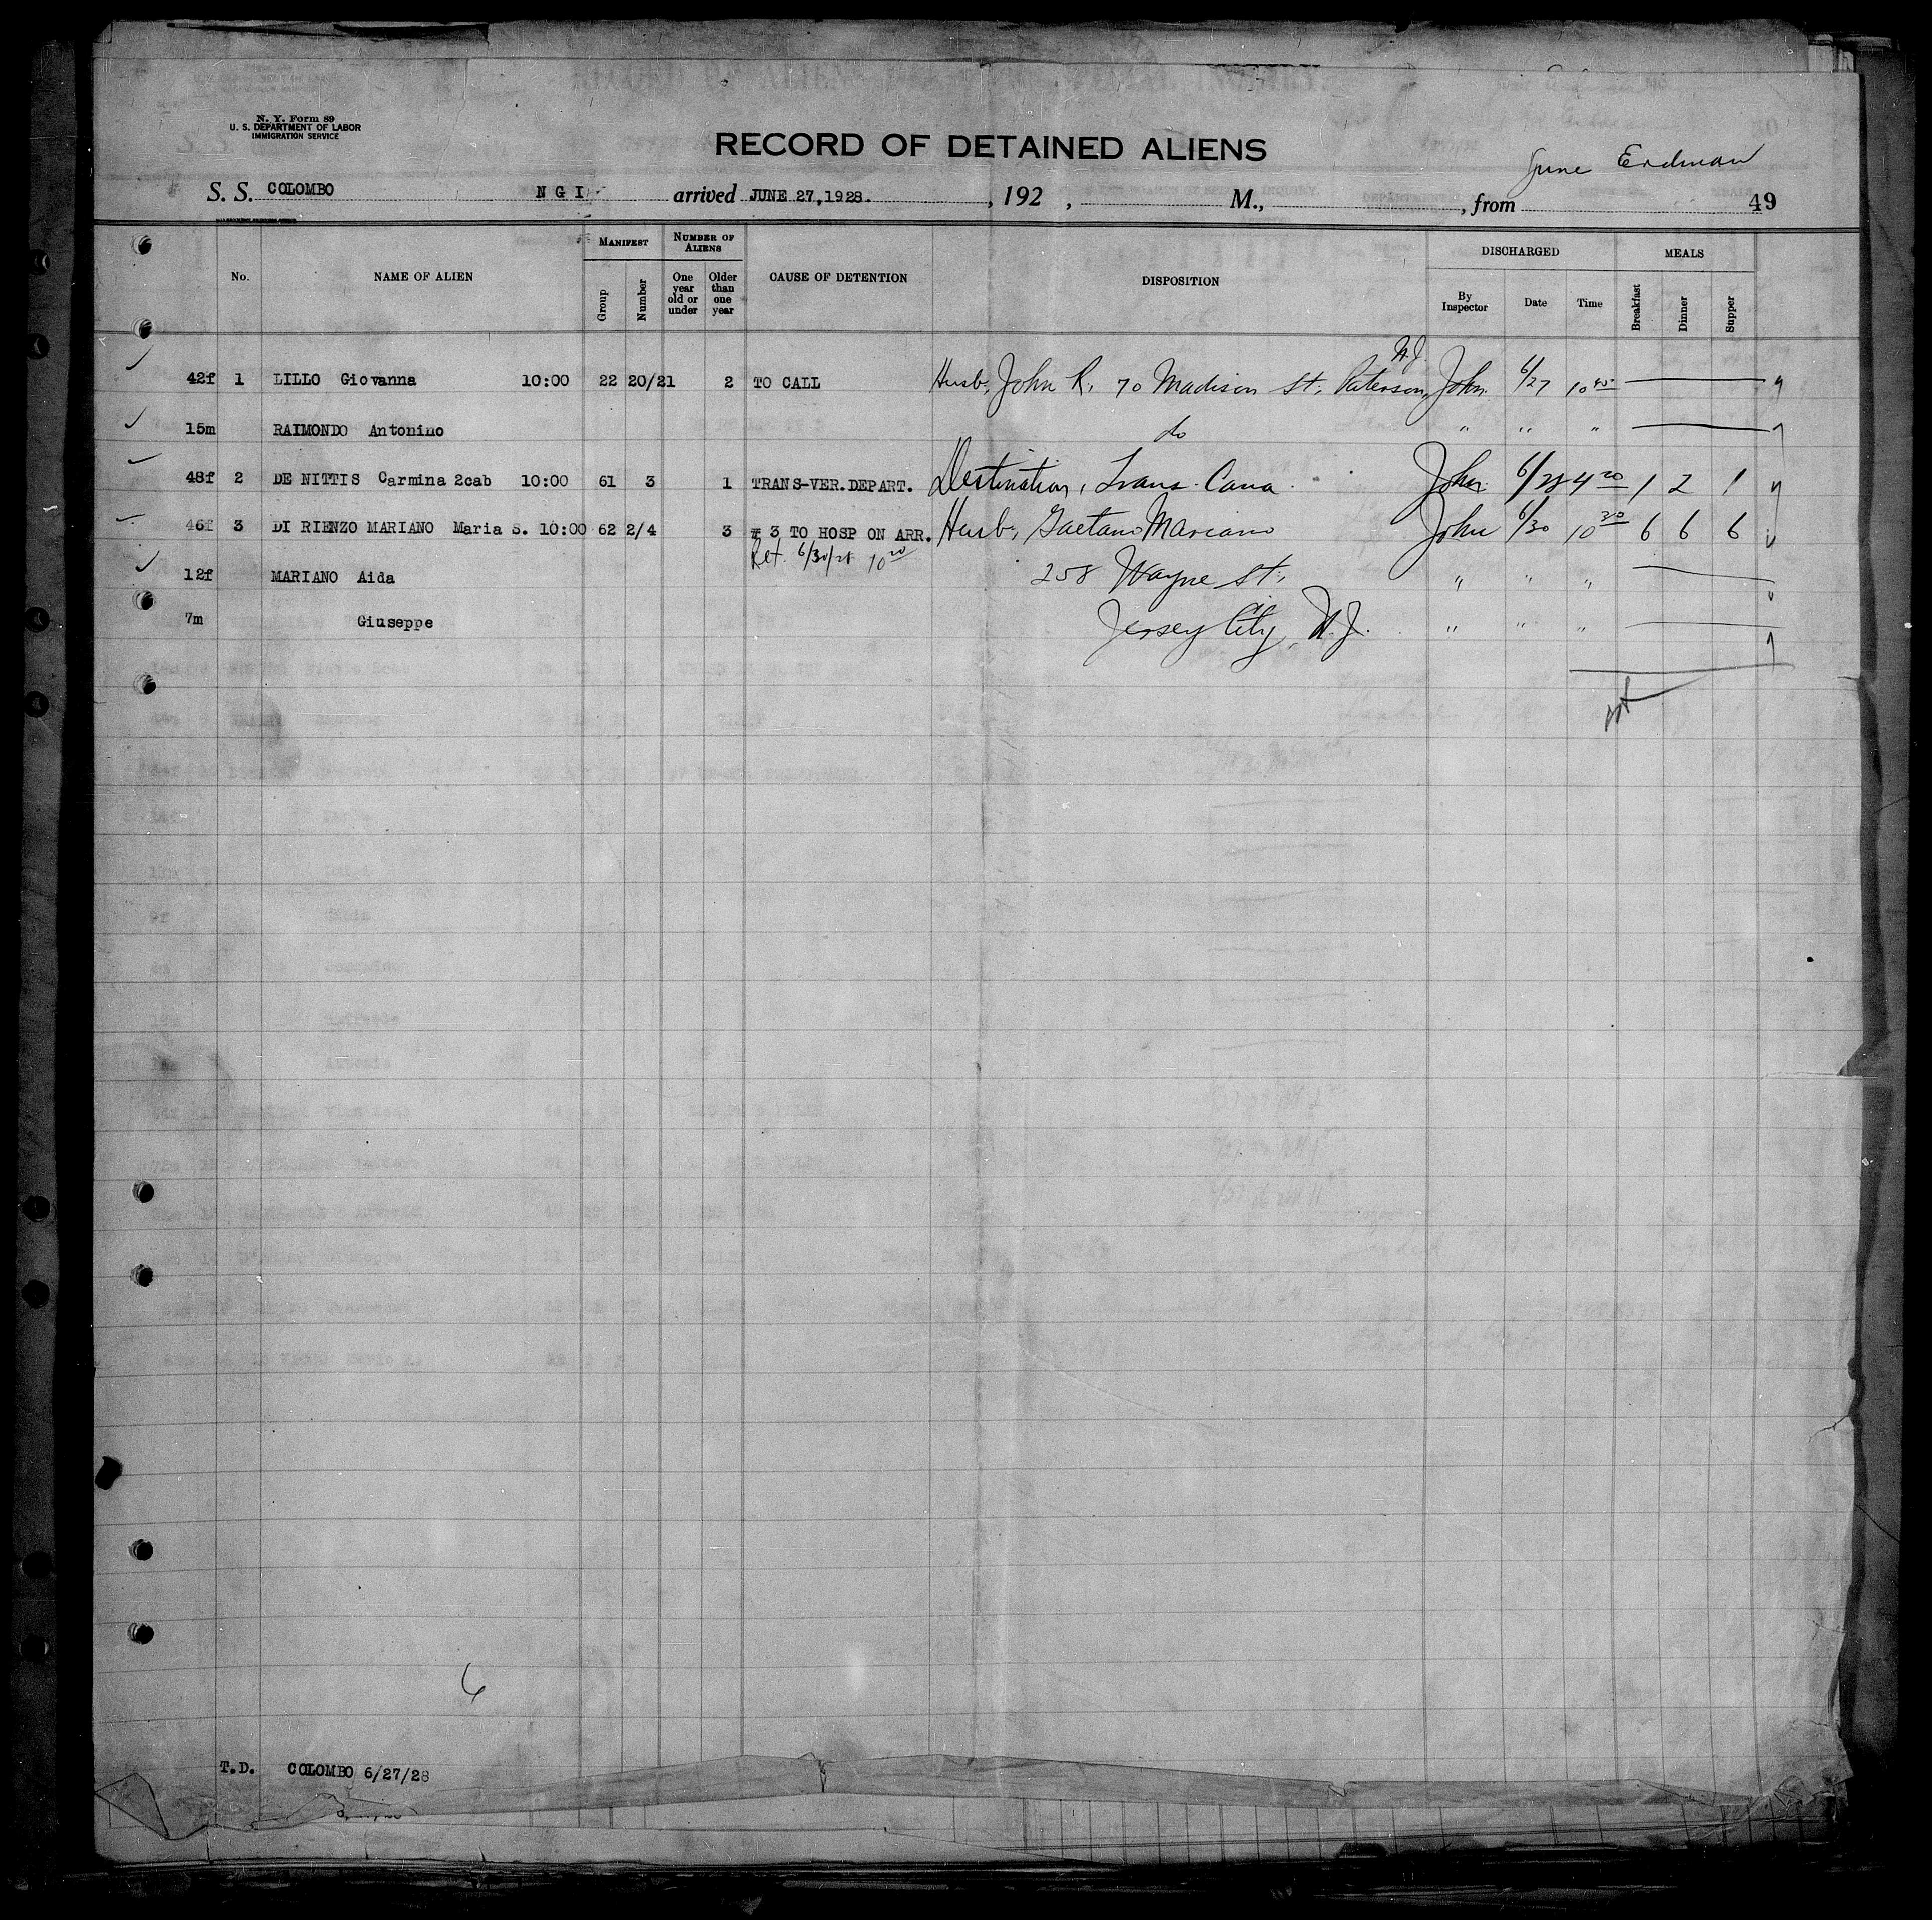 N. Y. Form 89
U. S. DEPARTMENT OF LABOR
IMMIGRATION SERVICE
RECORD OF DETAINED ALIENS
June Erdman
S. S. COLOMBO N G I arrived JUNE 27, 1928. , 192 , M., , from 49
No. NAME OF ALIEN MANIFEST Group Number NUMBER OF ALIENS One year old or under Older than one year CAUSE OF DETENTION DISPOSITION DISCHARGED By Inspector Date Time MEALS Breakfast Dinner Supper
42f 1 LILLO Giovanna 10:00 22 20/21 2 TO CALL Husb, John R. 70 Madison St, Paterson, N.J. John 6/27 10 40
15m RAIMONDO Antonino do " " "
48f 2 DE NITTIS Carmina 2cab 10:00 61 3 1 TRANS-VER.DEPART. Destination, Trans. Cana. John 6/28 4 20 1 2 1
46f 3 DI RIENZO MARIANO Maria S. 10:00 62 2/4 3 # 3 TO HOSP ON ARR. Husb, Gaetano Mariano John 6/30 10 30 6 6 6
Ret. 6/30/28 10 20
12f MARIANO Aida 258 Wayne St, " " "
7m Giuseppe Jersey City, N.J. " " "
6
T.D. COLOMBO 6/27/28